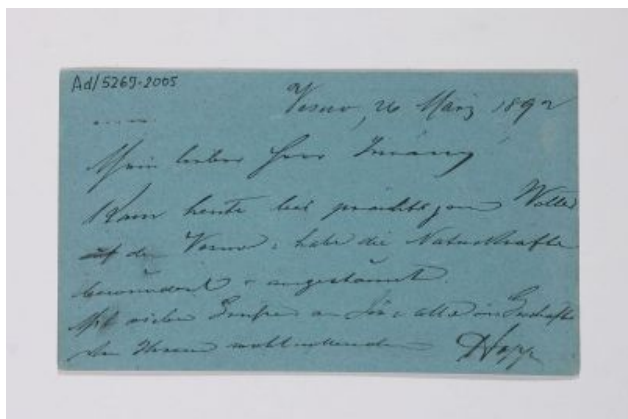 Ad/5269-2005
Vesuv, 26 März 1892
Mein lieber Herr Iványi
Kam heute bei prachtvollem Wetter
auf den Vesuv & habe die Naturkräfte
bewundert & angestaunt.
Mit vielen Grüßen an Sie & alle im Geschäfte
Ihr Ihnen wohlwollender Hopp